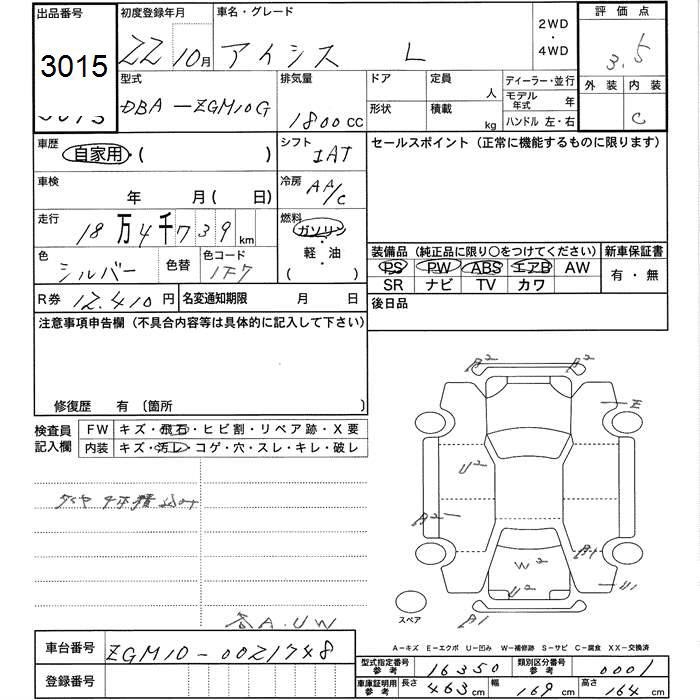 出品番号 初度登録年月 車名・グレード 2WD・4WD 評価点
3015 22 10月 アイシス L 3.5
型式 排気量 ドア 定員 人 ディーラー・並行 外装 内装
DBA-ZGM10G 1800cc 形状 積載 kg モデル年式 年 C
ハンドル 左・右
車歴 自家用・( ) シフト IAT セールスポイント (正常に機能するものに限ります)
車検 年 月( 日) 冷房 AA/C
走行 18万4千739km 燃料 ガソリン・軽・油 ( )
色 シルバー 色替 色コード 1F7
装備品 (純正品に限り○をつけてください) 新車保証書
PS PW ABS エアB AW 有・無
SR ナビ TV カワ
R券 12,410円 名変通知期限 月 日 後日品
注意事項申告欄 (不具合内容等は具体的に記入して下さい)
修復歴 有 〔箇所
検査員記入欄 FW キズ・飛石・ヒビ割・リペア跡・X要
内装 キズ・汚レ・コゲ・穴・スレ・キレ・破レ
タイヤ4本積込み
各A.U.W
A2 A2
E
U2
A2
A1
W2
U2
U1
A1
スペア
A-キズ E-エクボ U-凹み W-補修跡 S-サビ C-腐食 XX-交換済
車台番号 ZGM10-0021748
登録番号
型式指定番号参考 16350 類別区分番号参考 0001
車庫証明用参考 長さ 463cm 幅 169cm 高さ 164cm